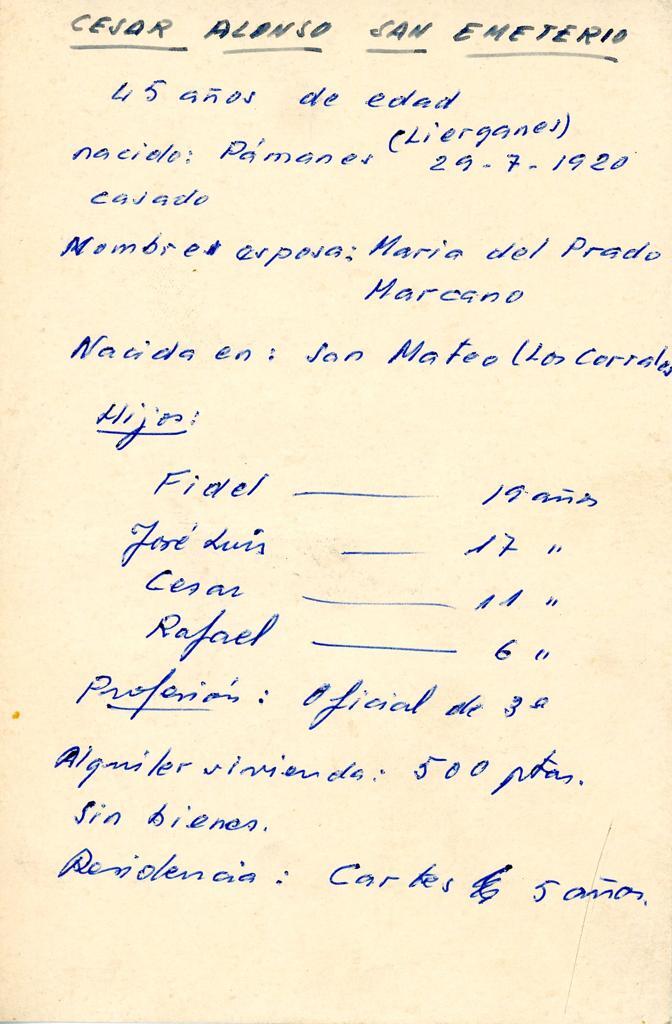 CESAR ALONSO SAN EMETERIO
45 años de edad
nacido: Pámanes (Lierganes)
29-7-1920
casado
Nombre esposa: Maria del Prado
Marcano
Nacida en: San Mateo (Los Corrales
Hijos:
Fidel —— 19 años
José Luis —— 17 "
Cesar —— 11 "
Rafael —— 6 "
Profesión: Oficial de 3ª
Alquiler vivienda: 500 ptas.
Sin bienes.
Residencia: Cartes 5 años.